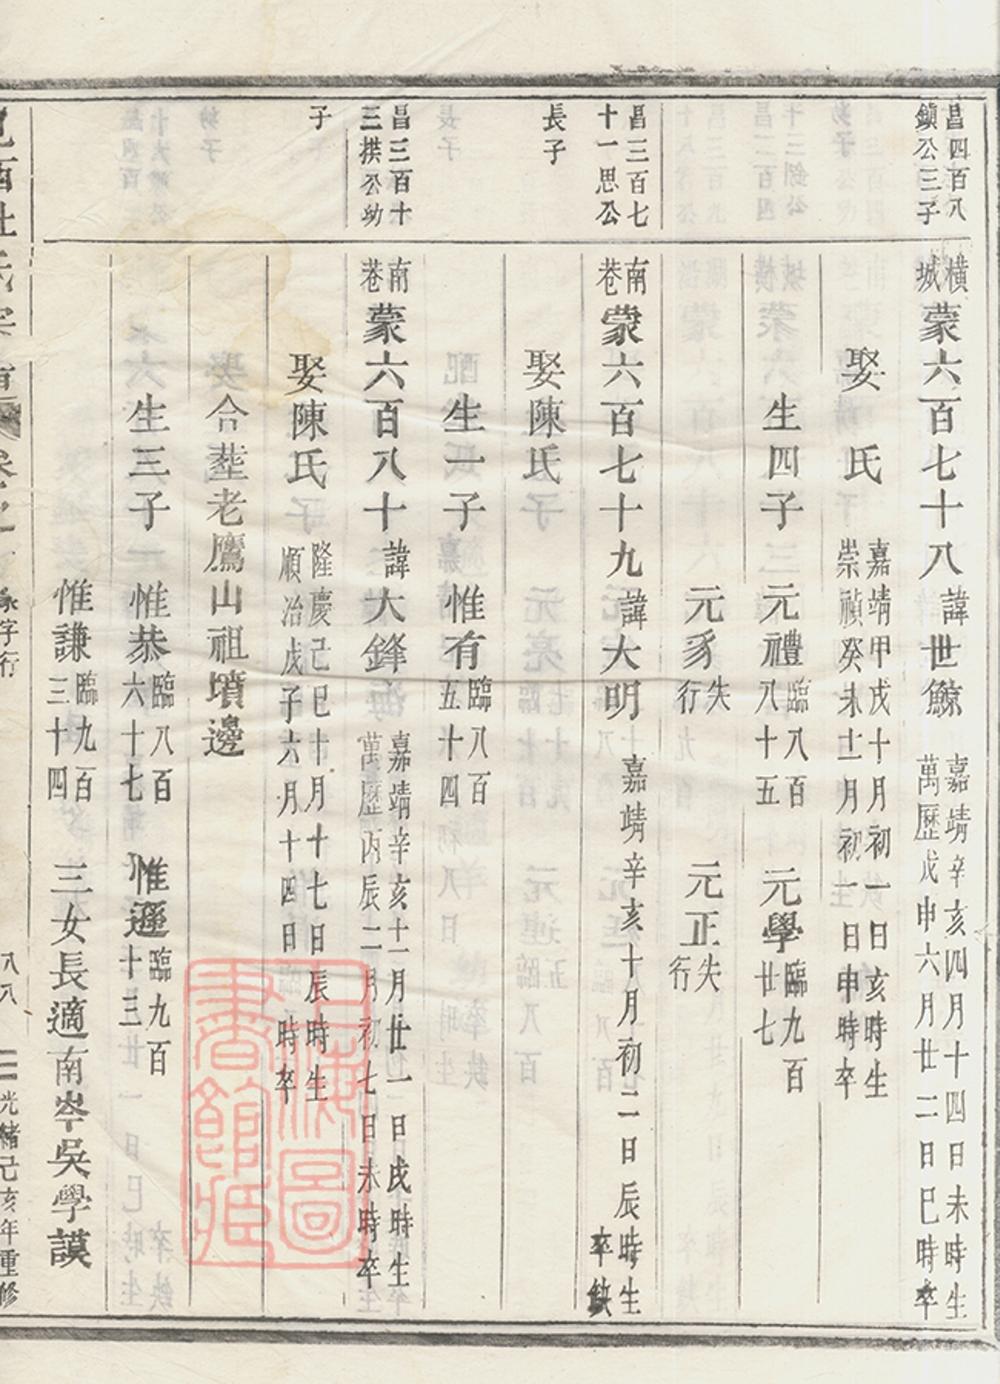 昌四百八
鎮公三子
橫城
蒙六百七十八諱世鯨
嘉靖辛亥四月十四日未時生
萬歷戊申六月廿二日巳時卒
娶 氏
嘉靖甲戌十月初一日亥時生
崇禎癸未十一月初一日申時卒
生四子 元禮 臨八百八十五 元學 臨九百廿七
元豸 失行 元正 失行
昌三百七
十一思公
長子
南巷
蒙六百七十九諱大明
嘉靖辛亥十月初二日辰時生
卒缺
娶陳氏
生一子 惟有 臨八百五十四
昌三百十
三拱公幼
子
南巷
蒙六百八十諱大鋒
嘉靖辛亥十二月廿一日戌時生
萬歷丙辰二月初七日未時卒
娶陳氏
隆慶己巳十月十七日辰時生
順治戊子六月十四日 時卒
合塟老鷹山祖墳邊
生三子 惟恭 臨八百六十七 惟遜 臨九百十三
惟謙 臨九百三十四 三女長適南岑吳學謨
杜氏宗
行字
八八
光緒己亥年重修
上海圖書館藏